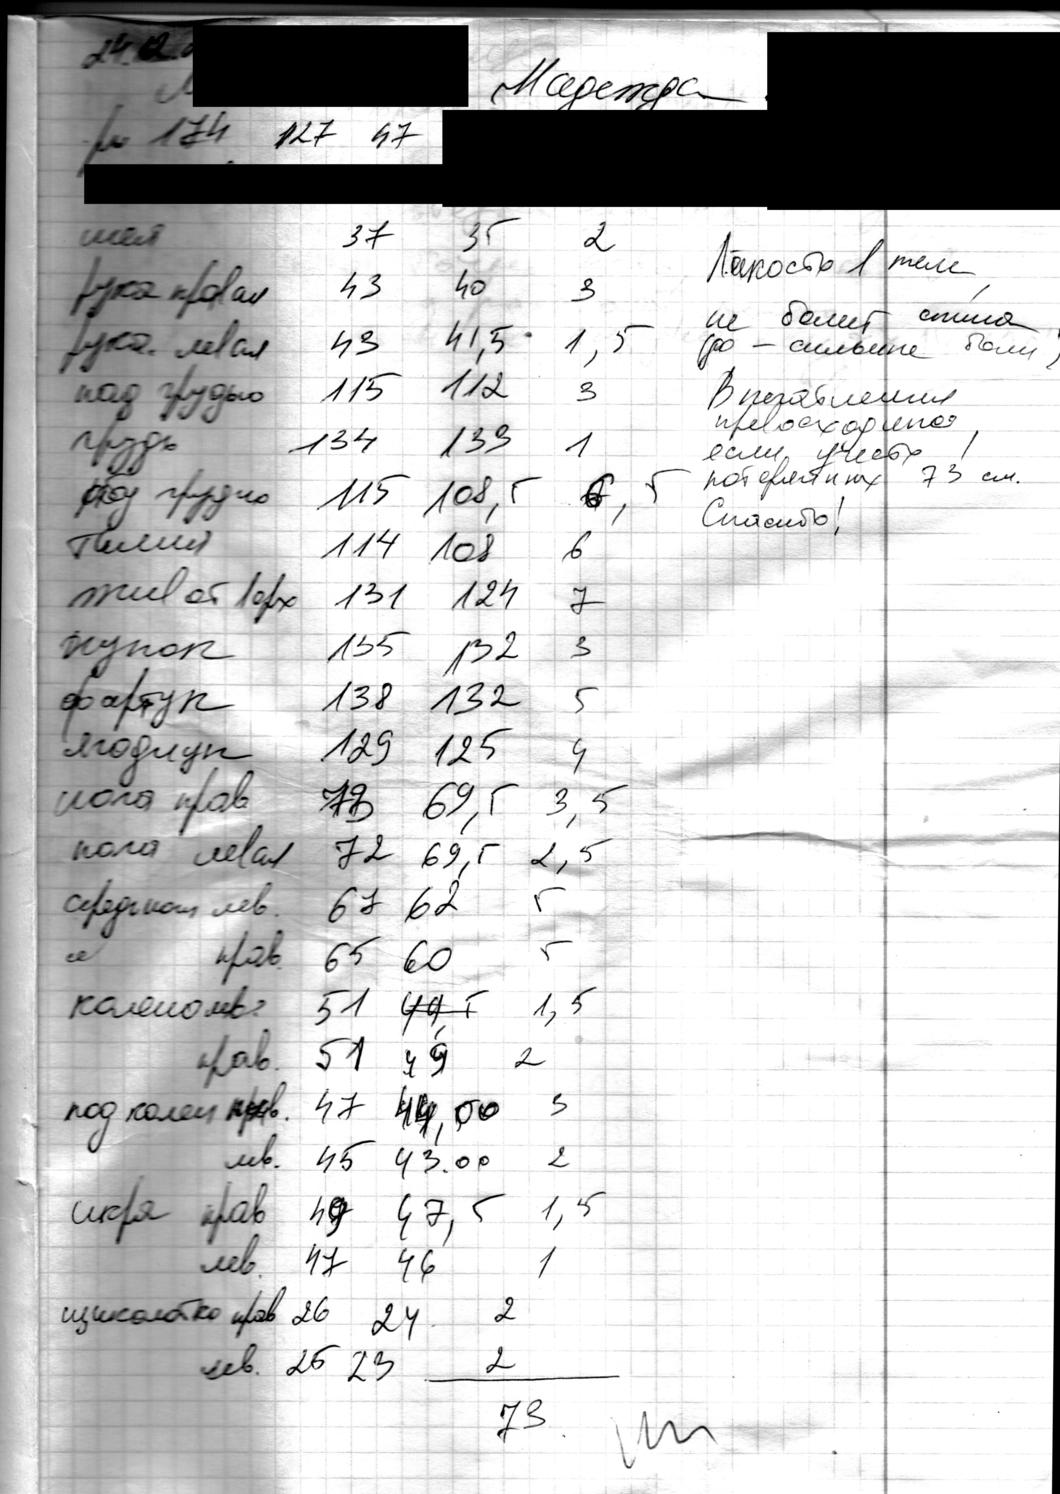 24.12.
Надежда
174 127 47
шея 37 35 2
рука правая 43 40 3
рука левая 43 41,5 1,5
над грудью 115 112 3
грудь 134 133 1
под грудью 115 108,5 6,5
талия 114 108 6
живот верх 131 124 7
пупок 135 132 3
фартук 138 132 5
ягодицы 129 125 4
нога прав 73 69,5 3,5
нога левая 72 69,5 2,5
середина лев. 67 62 5
прав. 65 60 5
колено лев. 51 49,5 1,5
прав. 51 49 2
под колен прав. 47 44,00 3
лев. 45 43.00 2
икра прав 49 47,5 1,5
лев. 47 46 1
щиколотка прав 26 24 2
лев. 25 23 2
73
Легкость в теле,
не болит спина
до – сильные боли,
Впечатления
превосходные,
если учесть
потерянных 73 см.
Спасибо!